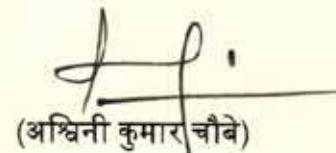 (अश्विनी कुमार चौबे)